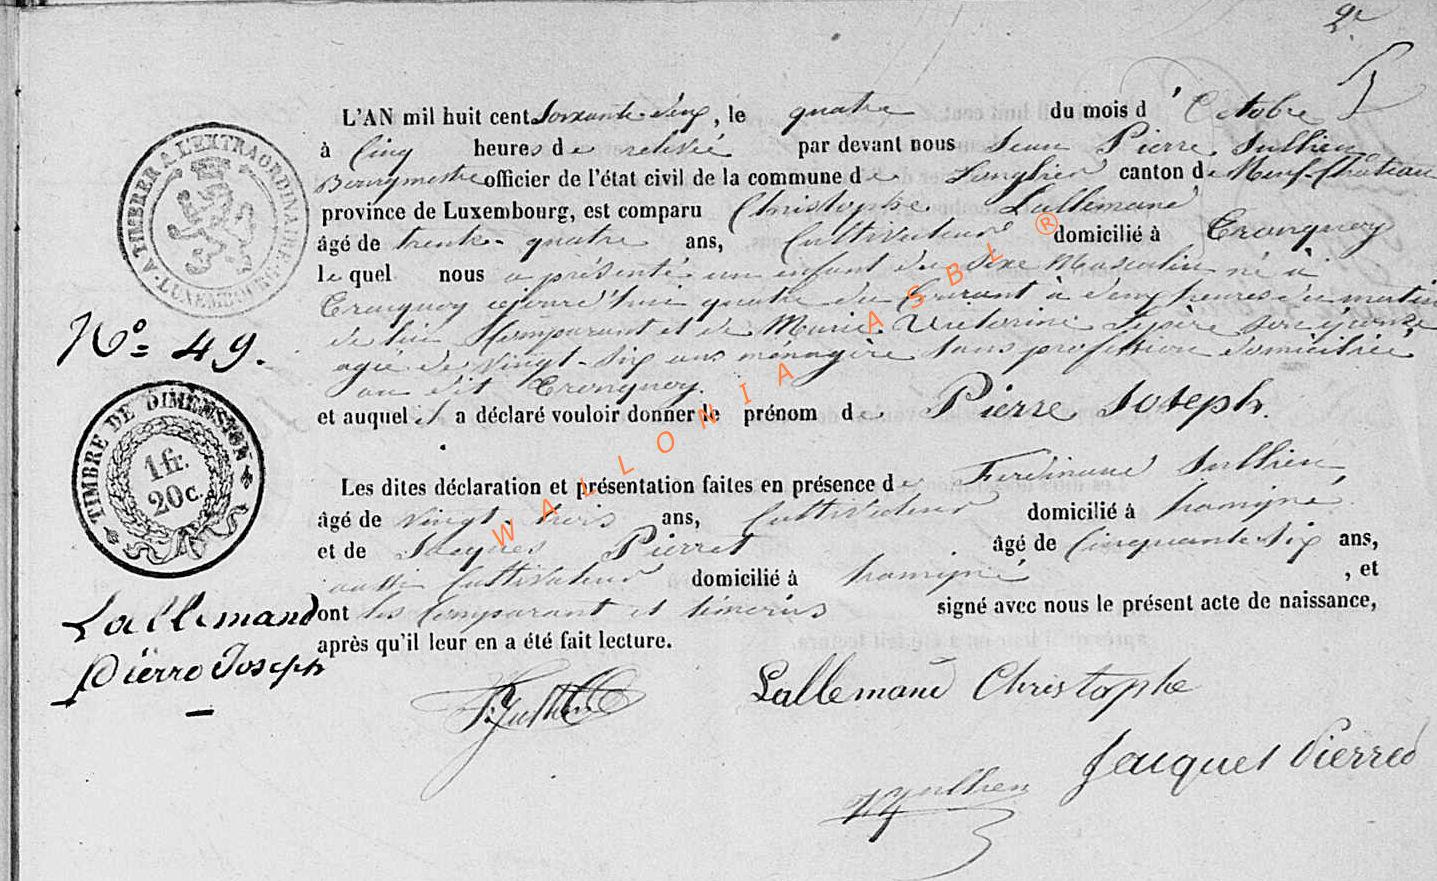 2e
L'AN mil huit cent Soixante deux, le quatre du mois d' Octobre
à Cinq heures de relevée par devant nous Jean Pierre Jullien
Bourgmestre officier de l'état civil de la commune de Longlier canton de Neuf-Château
province de Luxembourg, est comparu Christophe Lallemand
âgé de trente-quatre ans, Cultivateur domicilié à Tronquoy
lequel nous a présenté un enfant du sexe Masculin né à
Tronquoy cejourd'hui quatre du Courant à deux heures du matin
de lui Comparant et de Marie Victorine son épouse
agée de vingt-six ans ménagère sans profession domiciliée
au dit Tronquoy.
et auquel il a déclaré vouloir donner le prénom de Pierre Joseph.
Les dites déclaration et présentation faites en présence de Ferdinand Jullien
âgé de vingt-trois ans, Cultivateur domicilié à hamipré
et de Jacques Pierret âgé de Cinquante six ans,
aussi Cultivateur domicilié à hamipré , et
ont les Comparant et témoins signé avec nous le présent acte de naissance,
après qu'il leur en a été fait lecture.
Lallemand Christophe
Jacques Pierret
Jullien
A TIMBRER A L'EXTRAORDINAIRE
LUXEMBOURG
No 49.
TIMBRE DE DIMENSION
1 fr.
20 c.
Lallemand
Pierre Joseph
WALLONIA ASBL ®